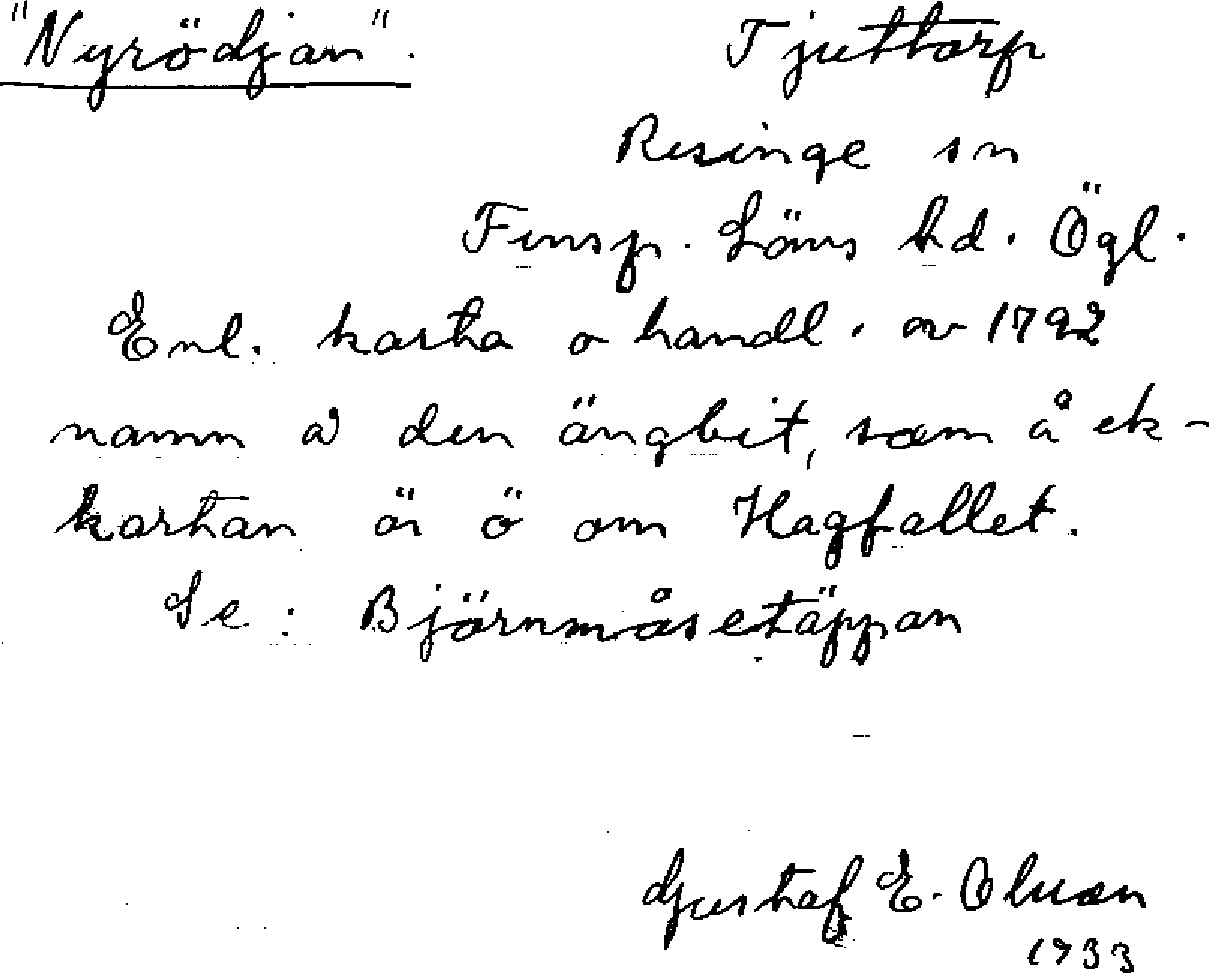 "Nyrödjan". Tjuttorp
Risinge sn
Finsp. Läns hd. Ögl.
Enl. karta o handl. av 1792
namn å den ängbit, som å ek-
kartan är ö om Hagfallet.
Se: Björnmåsetäppan
Gustaf E. Olsson
1933